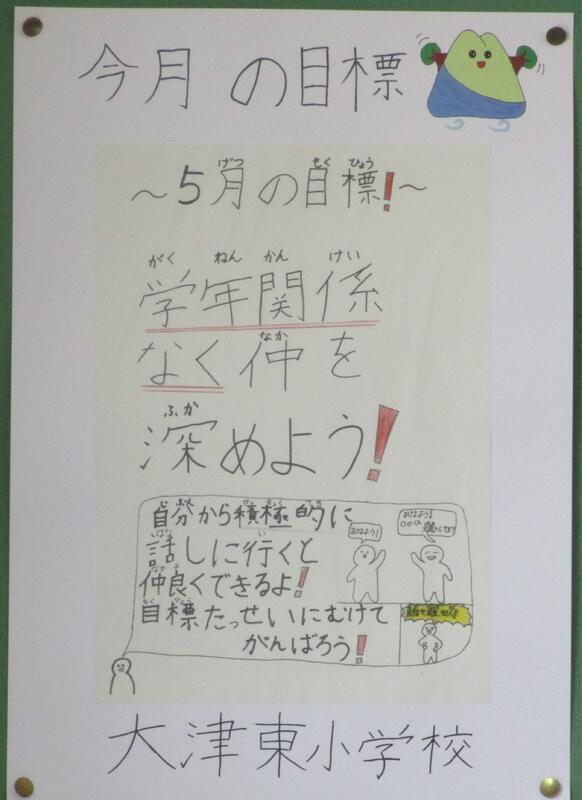 今月の目標
～5月の目標!～
学年関係
なく仲を
深めよう!
自分から積極的に
話しに行くと
仲良くできるよ!
目標たっせいにむけて
がんばろう!
おはよう!
おはよう!
大津東小学校